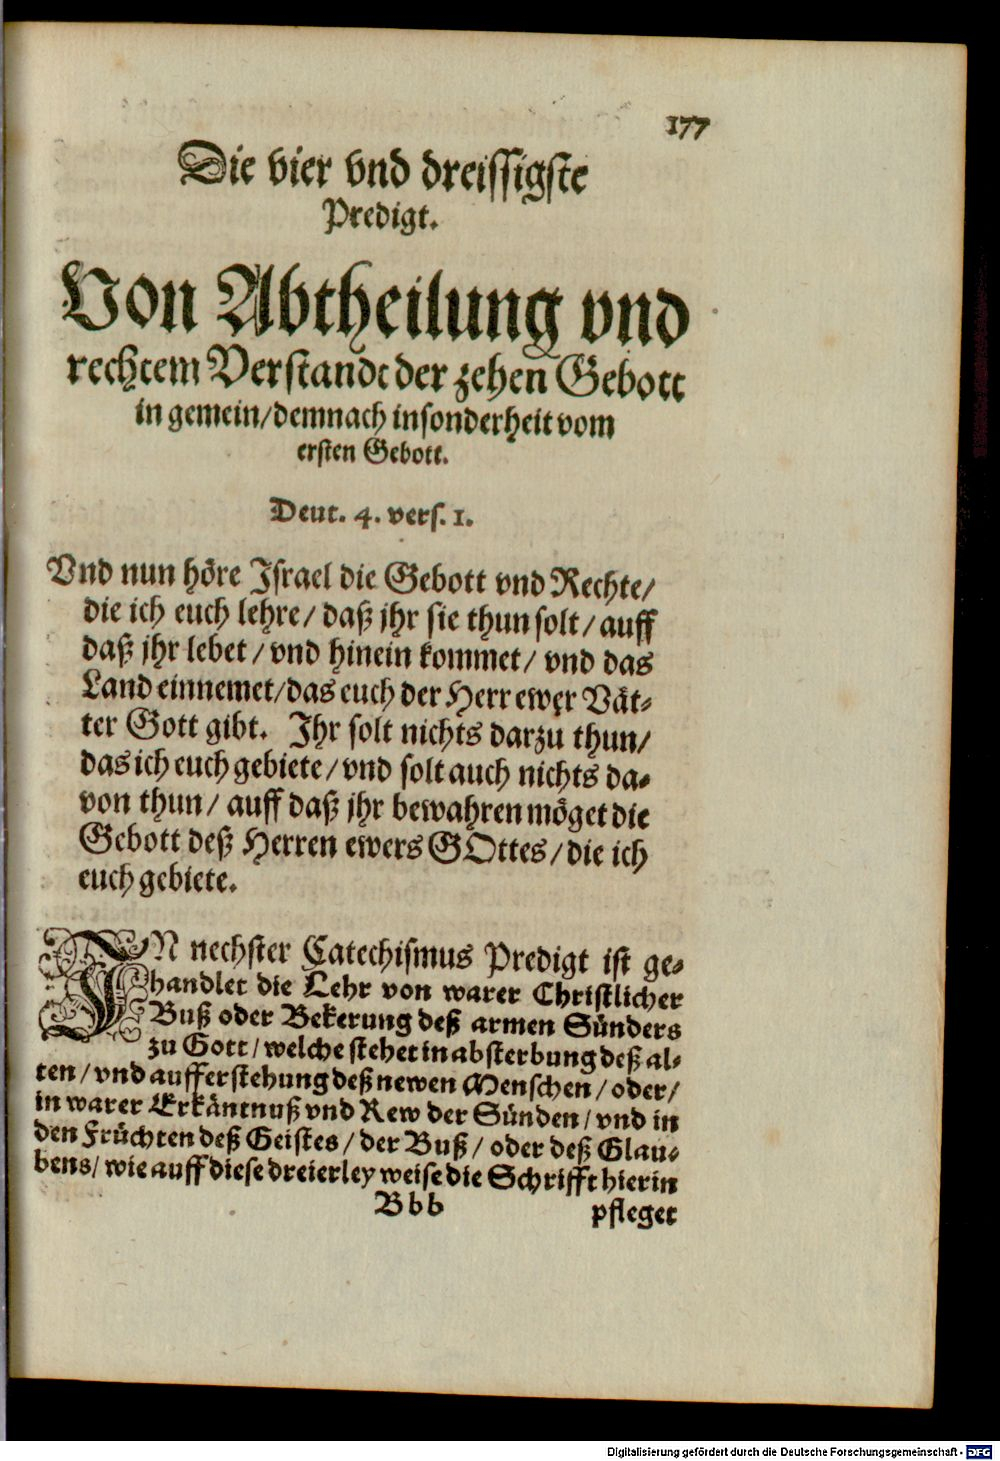 177
Die vier vnd dreissigste
Predigt.
Von Abtheilung vnd
rechtem Verstandt der zehen Gebott
in gemein/ demnach insonderheit vom
ersten Gebott.
Deut. 4. vers. 1.
Vnd nun höre Israel die Gebott vnd Rechte/
die ich euch lehre/ daß jhr sie thun solt/ auff
daß jhr lebet/ vnd hinein kommet/ vnd das
Land einnemet/ das euch der Herr ewer Vät-
ter Gott gibt. Ihr solt nichts darzu thun/
das ich euch gebiete/ vnd solt auch nichts da-
von thun/ auff daß jhr bewahren möget die
Gebott deß Herren ewers GOttes/ die ich
euch gebiete.
IN nechster Catechismus Predigt ist ge-
handlet die Lehr von warer Christlicher
Buß oder Bekerung deß armen Sünders
zu Gott/ welche stehet in absterbung deß al-
ten/ vnd aufferstehung deß newen Menschen/ oder/
in warer Erkäntnuß vnd Rew der Sünden/ vnd in
den Früchten deß Geistes/ der Buß/ oder deß Glau-
bens/ wie auff diese dreierley weise die Schrifft hierin
Bbb pfleget
Digitalisierung gefördert durch die Deutsche Forschungsgemeinschaft - DFG